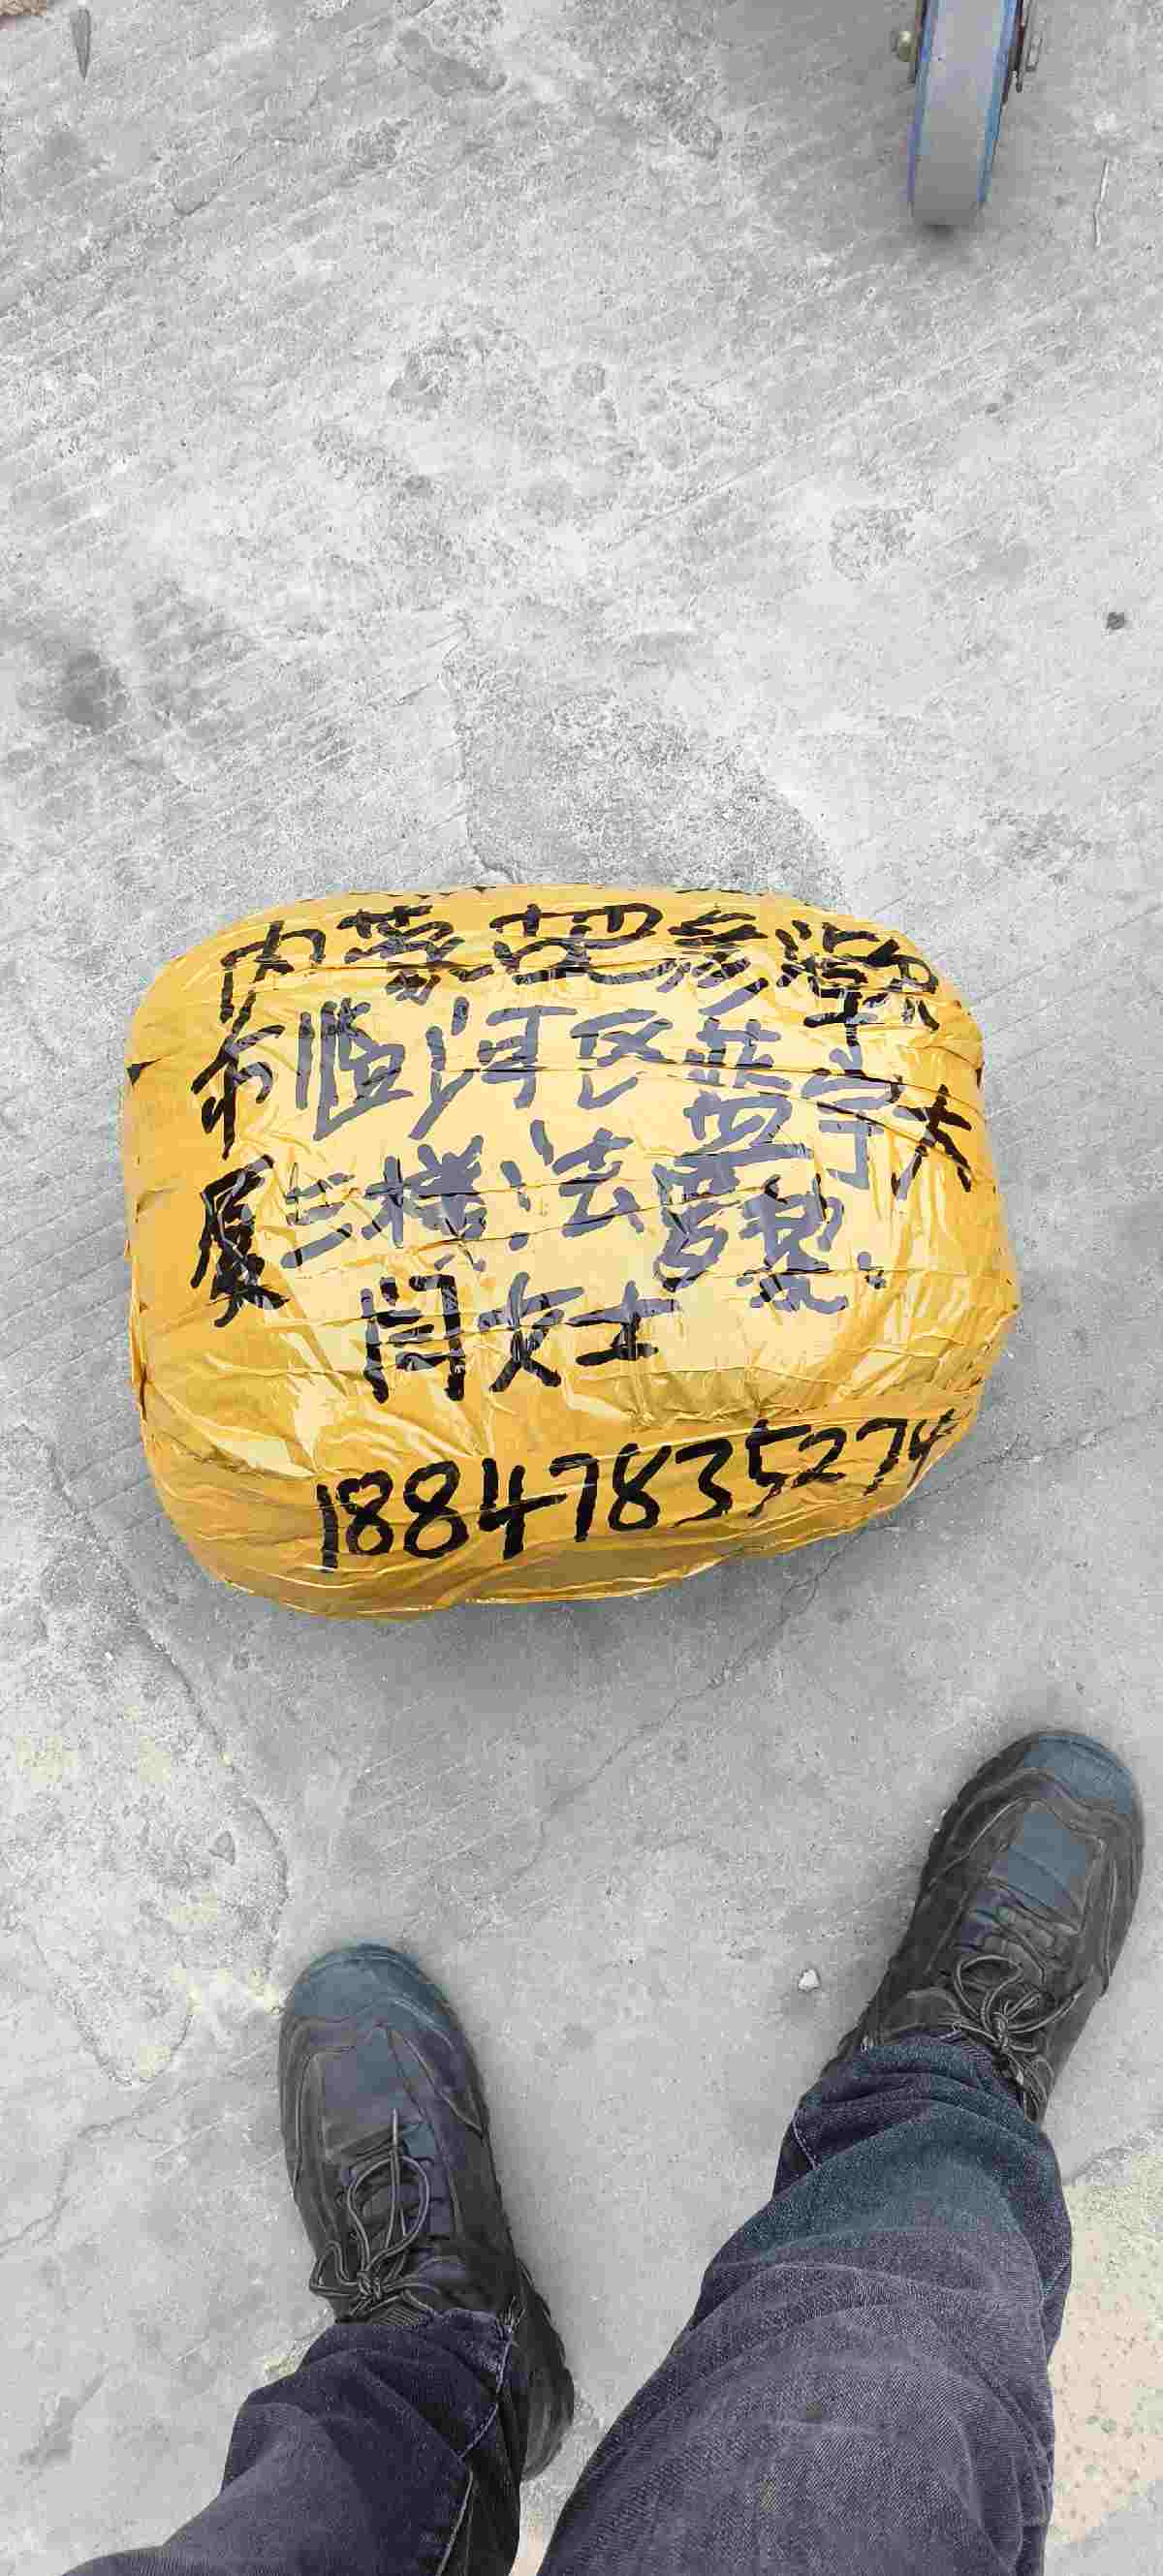 内蒙古巴彦淖尔
市临河区蓝宇大
厦三楼:法
闫女士
18847835274